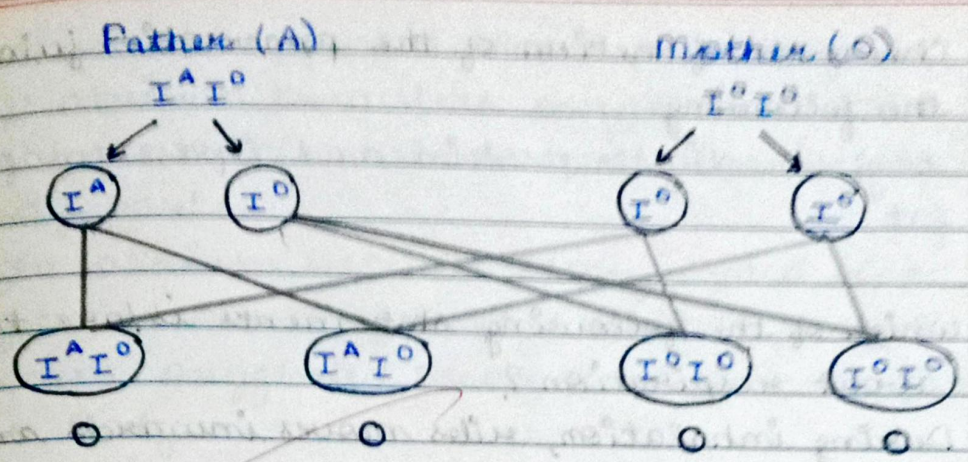 Father (A), Mother (O)
I^A I^O I^O I^O
I^A I^O I^O I^O
I^A I^O I^A I^O I^O I^O I^O I^O
O O O O